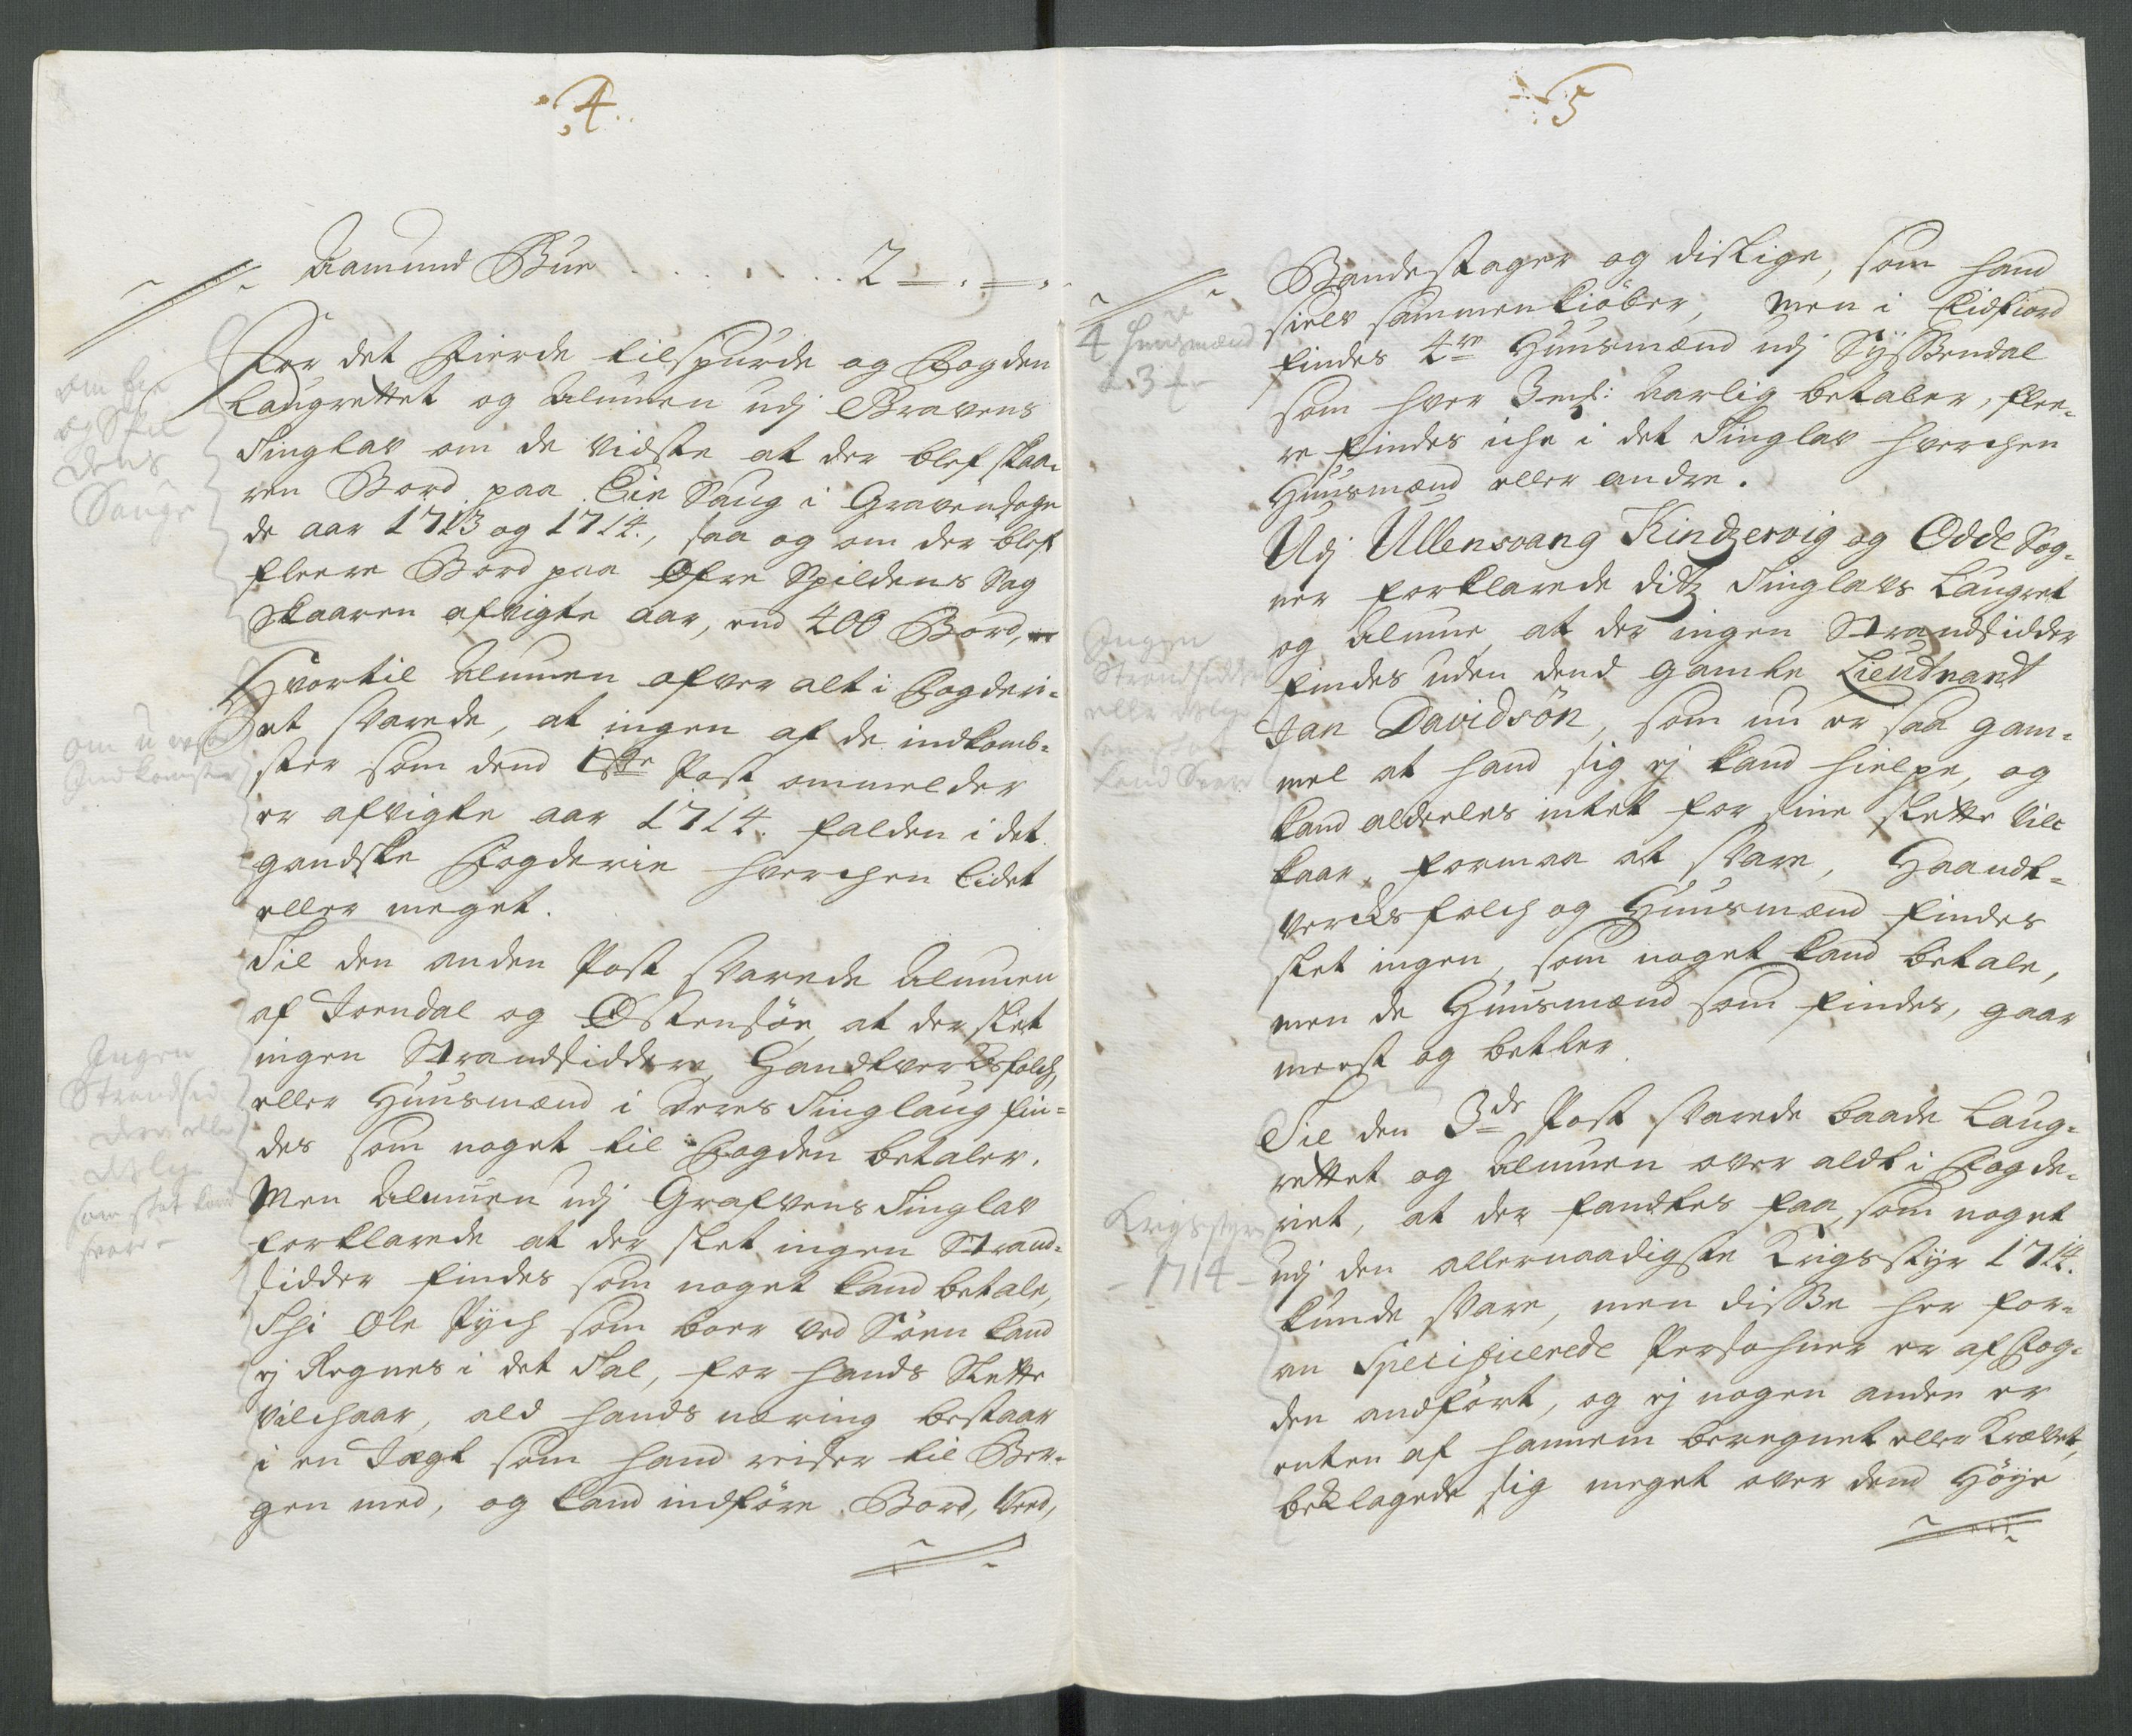 4.
Aamund Bue . . . . . . . 2 – . – .
For det Fierde tilspurde og Fogden
Laugrettet og Almuen udj Gravens
Tinglav om de vidste at der blef skaa¬
ren Bord paa Eie Saug i Gravensogn
de aar 1713 og 1714., saa og om der blef
fleere Bord paa Øfre Spildens Sag
Skaaren afvigte aar, end 400 Bord,
Hvortil Almuen ofver alt i Fogderi¬
et svarede, at ingen af de indkomb¬
ster som dend 1ste Post ommelder
er afvigte aar 1714. falden i det
gandske Fogderie hverchen lidet
eller meget.
Til den anden Post svarede Almuen
af Jondal og Østensøe, at der slet
ingen Strandsiddere, Handtvercksfolch,
eller Huusmænd i deres Tinglaug fin¬
des som noget til Fogden betaler.
Men Almuen udj Grafvens Tinglav
forklarede at der slet ingen Strand¬
sidder findes som noget kand betale,
Thi Ole Pÿch som boer ved Søen kand
ej Regnes i det Tal, for hands Slette
vilchaar, ald hands næring bestaar
i en Jægt som hand reiser til Ber¬
gen med, og kand indføre Bord, Veed,
om Eie
og Spil
dens
Sauge
om u visse
Indkomster
Ingen
Strandsid
der eller
som slet kand
svare
5
Bandestager og dislige, som hand
sielv sammenkiøber, men i Eidfiord
findes 4re Huusmænd udj Sÿssendal
som hver 3 mk: Aarlig betaler, flee¬
re findes iche i det Tinglav hverchen
Huusmænd eller andre.
Udj Ullensvang Kindzervig og Odde Sog¬
ner forklarede ditz Tinglavs Laugret
og Almue, at der ingen Strandsidder
findes uden dend gamle Lieutnant
Jan Davidsön, som nu er saa gam¬
mel at hand sig ej kand hielpe, og
kand alderles intet for sine slette vil
kaar, formaa at svare, Haandt¬
vercksfolch og Huusmænd findes
slet ingen, som noget kand betale,
men de Huusmænd som findes, gaar
meest og betler.
Til den 3de Post svarede baade Laug¬
rettet og Almuen over aldt i Fogde¬
riet, at der fandtes faa, som noget
udj den allernaadigste Krigsstÿr 1714.
kunde svare, men disse her for¬
an Specificerede Persohner er af Fog¬
den andført, og ej nogen anden er
enten af hannem beregnet eller krævet,
beklagede sig meget over dend Høÿe
4 Huusmænd
a 3
Ingen
Strandsidder
eller
som slet
kand Svare
Krigsstyr
– 1714 –